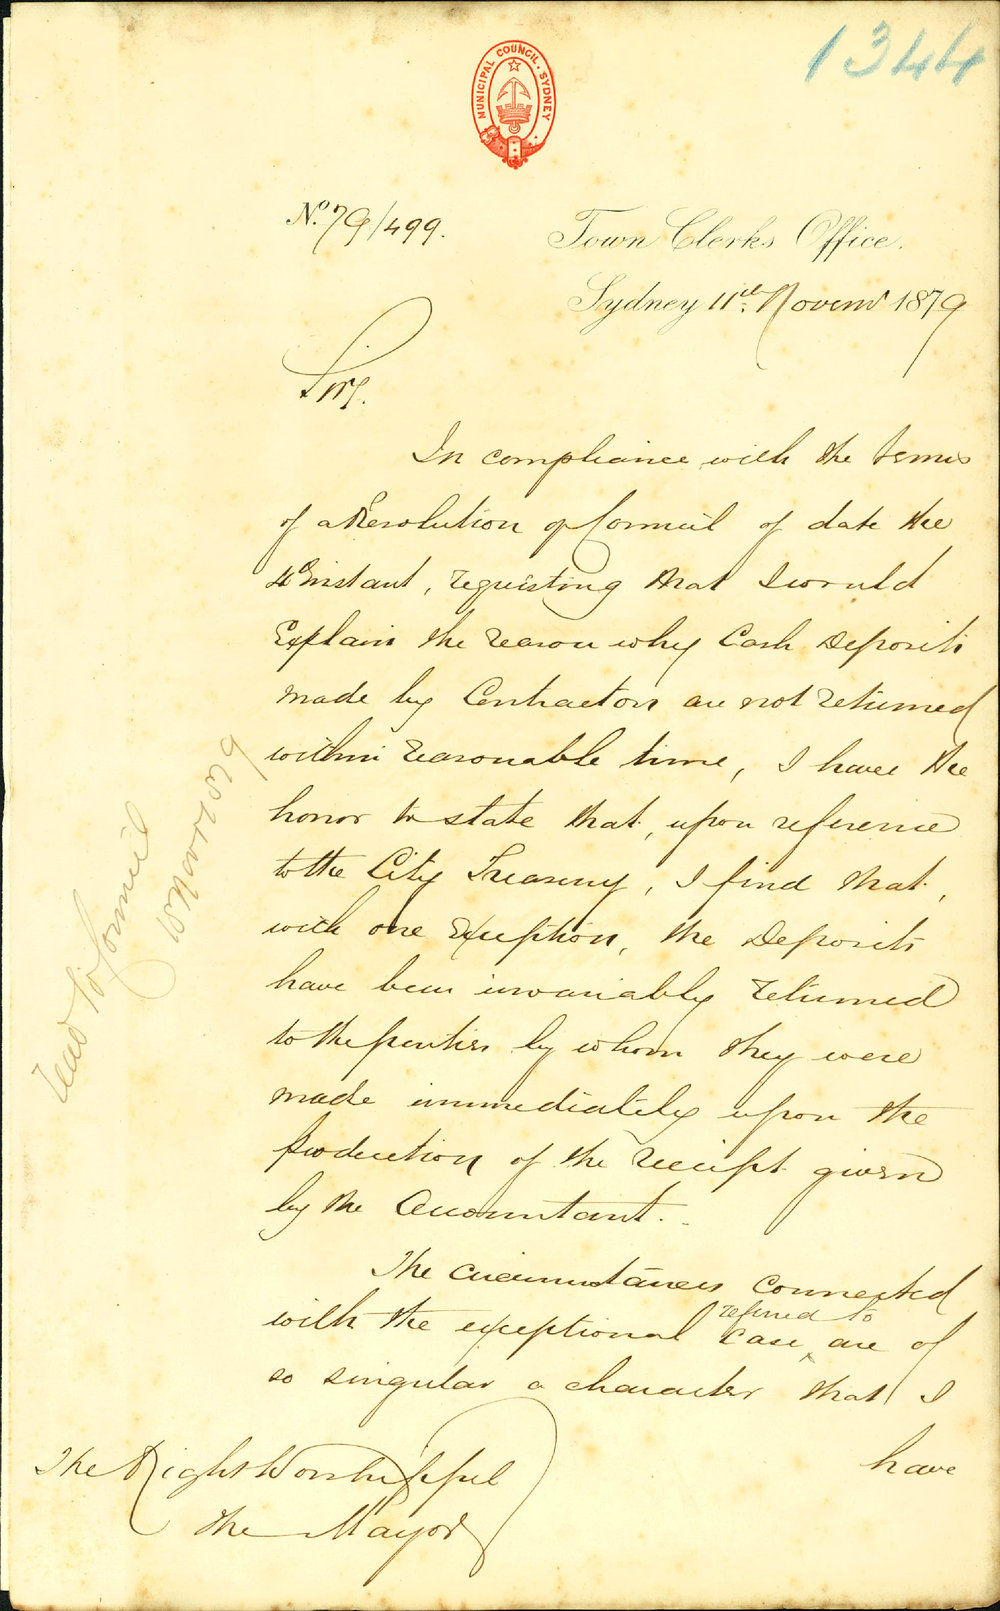 1344
MUNICIPAL COUNCIL. SYDNEY
No. 79/499.
Town Clerks Office.
Sydney 11th Novemr 1879
Sir,
In compliance with the terms
of a Resolution of Council of date the
4th instant, requesting that I would
Explain the reason why Cash Deposits
made by Contractors are not returned
within reasonable time, I have the
honor to state that, upon reference
to the City Treasury, I find that,
with one Exception, the Deposits
have been invariably returned
to the parties by whom they were
made immediately upon the
production of the receipt given
by the Accountant.
The circumstances connected
with the exceptional case referred to are of
so singular a character that I
have
The Right Worshipful
the Mayor
read to Council
18 Nov 1879